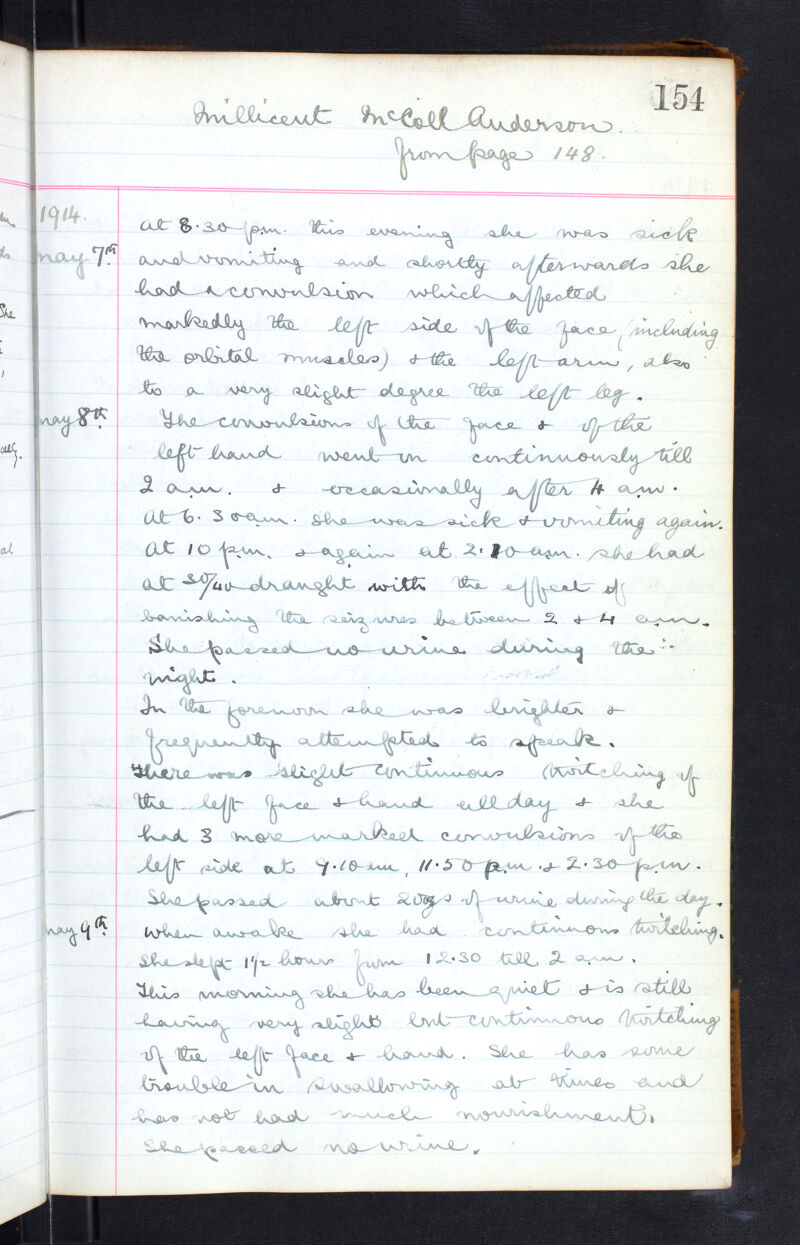 154
Millicent McColl Anderson.
from page 148.
1914.
May 7th
at 8.30 p.m. this evening she was sick
and vomiting and shortly afterwards she
had a convulsion which affected
markedly the left side of the face, (including
the orbital muscles) & the left arm, also
to a very slight degree the left leg.
May 8th
The convulsions of the face & of the
left hand went on continuously till
2 a.m. & occasionally after 4 a.m.
At 6.30 a.m. she was sick & vomiting again.
At 10 p.m. & again at 2.10 a.m. she had
at 30/40 draught with the effect of
banishing the seizures between 2 & 4 a.m.
She passed no urine during the
night.
In the forenoon she was brighter &
frequently attempted to speak.
There was slight continuous twitching of
the left face & hand all day & she
had 3 more marked convulsions of the
left side at 9.10 am, 11.50 p.m. & 2.30 p.m.
She passed about 20ozs of urine during the day.
May 9th
When awake she had continuous twitching.
She slept 1½ hours from 12.30 till 2 a.m.
This morning she has been quiet & is still
having very slight but continuous twitching
of the left face & hand. She has some
trouble in swallowing at times and
has not had much nourishment.
She passed no urine.